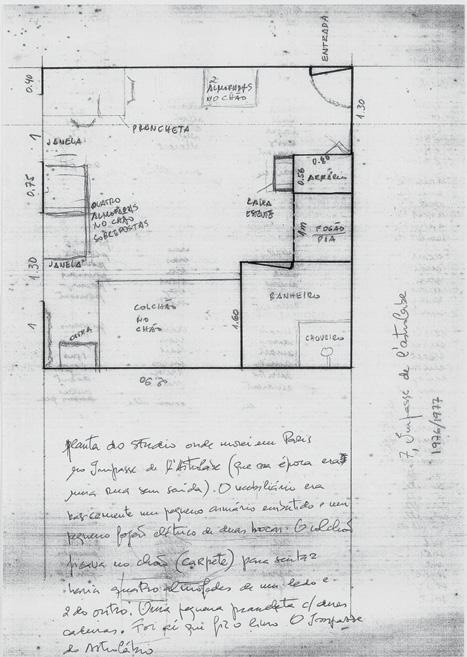 ENTRADA
0.40
ALMOFADAS
NO CHÃO
1.30
PRANCHETA
1
JANELA
0.80
0.56
ARMÁRIO
0.75
QUATRO
ALMOFADAS
NO CHÃO
SOBREPOSTAS
CAIXA
ESTANTE
1m
FOGÃO
PIA
JANELA
1.30
BANHEIRO
COLCHÃO
NO
CHÃO
1.60
1
CAIXA
CHUVEIRO
7, Impasse de l'astrolabe
1976/1977
planta do studio onde morei em Paris
no Impasse de l'Astrolabe (que na época era
uma rua sem saída). O mobiliário era
basicamente um pequeno armário embutido e um
pequeno fogão elétrico de duas bocas. O colchão
ficava no chão (carpete) para sentar
havia quatro almofadas de um lado e
2 do outro. Uma pequena prancheta c/ duas
cadeiras. Foi aí que fiz o livro O Impasse
do Astrolábio